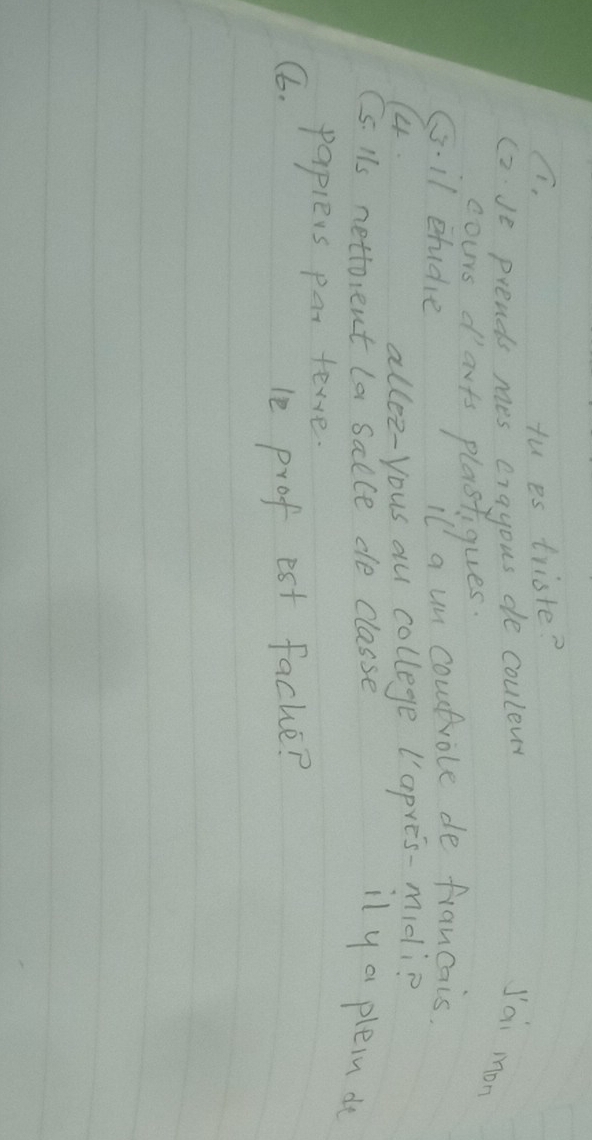 (1. tu es triste?
(2. Je prends mes crayons de couleur J'ai mon
cours d'arts plastiques.
(3. il étudie il a un contrôle de francais.
(4. allez-vous au college l'après-midi?
(5. ils nettoient la salle de classe il y a plein de
papiers par terre.
(6. le prof est faché?